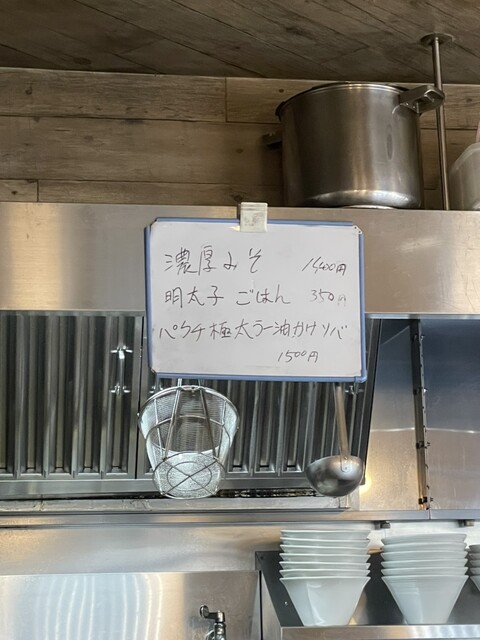 濃厚みそ 1400円
明太子ごはん 350円
パクチ極太ラー油かけソバ
1500円